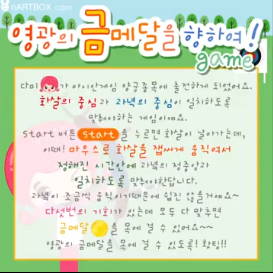 ARTBOX.com
영광의 금메달을 향하여!
game
가 아시안게임 양궁종목에 출전하게 되었어요.
화살의 중심과 과녁의 중심이 일치하도록
맞춰야하는 게임이에요.
start 버튼 start 을 누르면 화살이 날아가는데,
이때! 마우스로 화살을 잽싸게 움직여서
정해진 시간안에 과녁의 정중앙과
일치하도록 맞춰야한답니다.
과녁이 조금씩 움직이기때문에 쉽진 않을거에요~
다섯번의 기회가 있는데 모두 다 맞추면
금메달 을 목에 걸 수 있어요~~
영광의 금메달을 목에 걸 수 있도록! 화팅!!